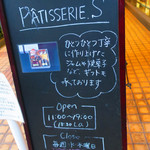 PÂTISSERIE.S
ひとつひとつ丁寧
に作り上げた
ジャムや焼菓子
など、ギフトも
承っております
Open
11:00〜19:00
Close
毎週 水曜日